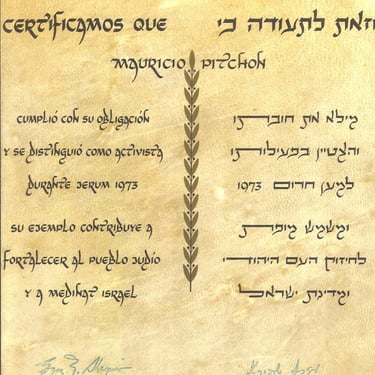 CERTIFICAMOS QUE
וזאת לתעודה כי
MAURICIO PITCHON
CUMPLIÓ CON SU OBLIGACIÓN
מילא את חובתו
Y SE DISTINGUIÓ COMO ACTIVISTA
והצטיין בפעילותו
DURANTE JERUM 1973
למען חרום 1973
SU EJEMPLO CONTRIBUYE A
ומשמש מופת
FORTALECER AL PUEBLO JUDÍO
לחיזוק העם היהודי
Y A MEDINAT ISRAEL
ומדינת ישראל